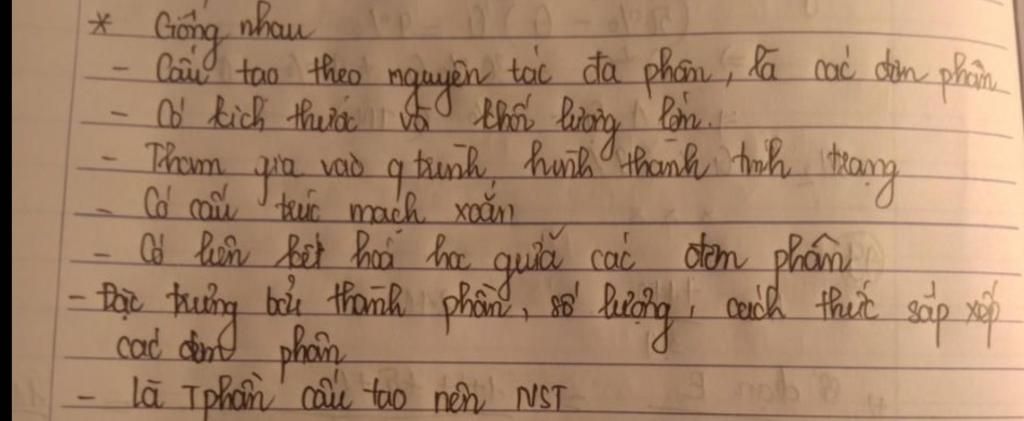 * Giống nhau
- Cấu tạo theo nguyên tắc đa phân, là các đơn phân
- Có kích thước và khối lượng lớn.
- Tham gia vào q trình hình thành tính trạng
- Có cấu trúc mạch xoắn
- Có liên kết hoá học giữa các đơn phân
- Đặc trưng bởi thành phần, số lượng, cách thức sắp xếp
các đơn phân
- là Tphần cấu tạo nên NST